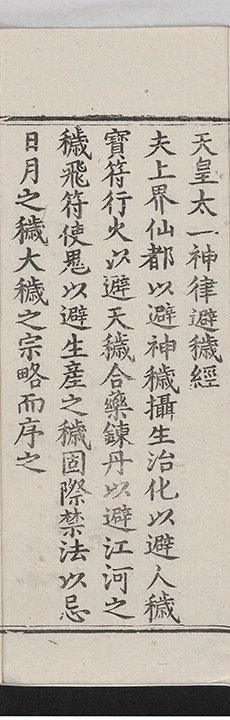 天皇太一神律避穢經
夫上界仙都以避神穢攝生治化以避人穢
寶符行火以避天穢合藥鍊丹以避江河之
穢飛符使鬼以避生産之穢固際禁法以忌
日月之穢大穢之宗略而序之